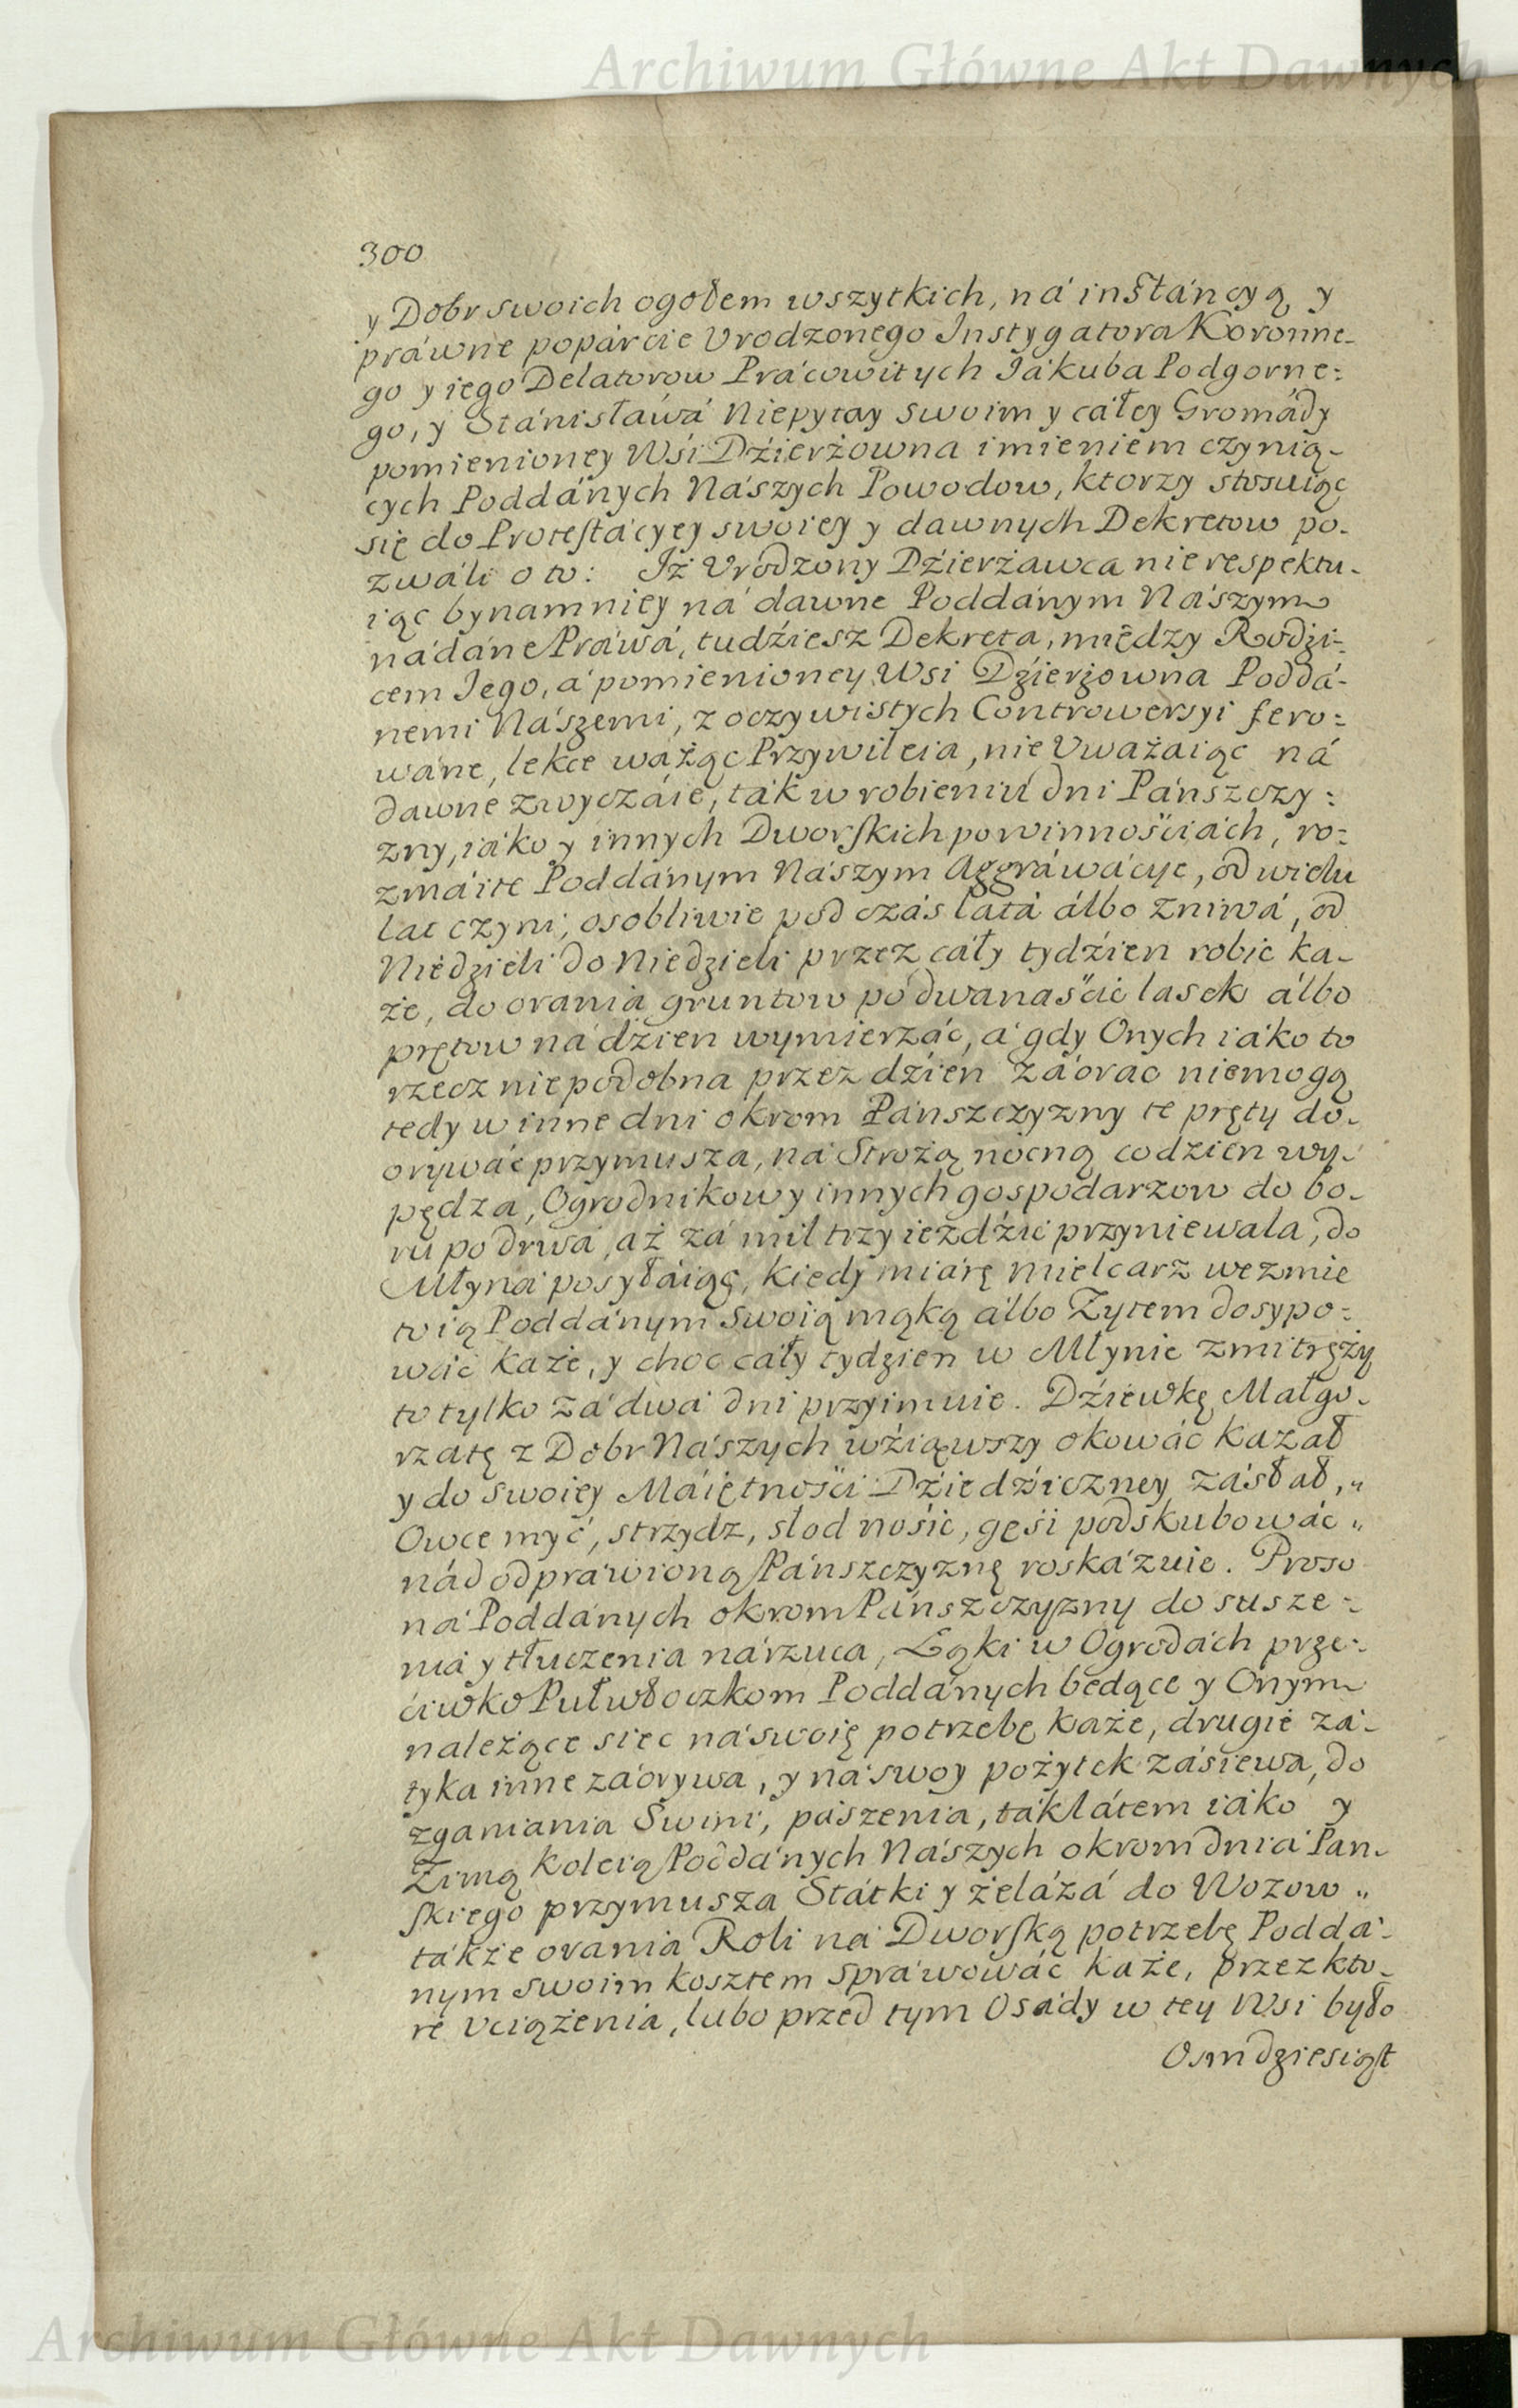 Archiwum Główne Akt Dawnych
300
y Dobr swoich ogołem wszytkich, ná instáncyą y
práwne popárcie Vrodzonego Instygatora Koronne-
go y iego Delatorow Prácowitych Iákuba Podgorne:
go, y Stánisłáwá Niepytay swoim y cáłey Gromády
pomienioney Wśi Dźierżowna imieniem czynią-
cych Poddánych Nászych Powodow, ktorzy stosuiąc
się do Protestácyey swoiey y dawnych Dekretow po-
zwáli o to: Iż Vrodzony Dźierżawca nie respektu-
iąc bynamniey ná dawne Poddánym Nászym
nádáne Práwá, tudźiesz Dekreta, między Rodzi-
cem Iego, á pomienioney Wsi Dzierżowna Poddá-
nemi Nászemi, z oczywistych Controwersyi fero:
wáne, lekce ważąc Przywileia, nie Vważaiąc ná
dawne zwyczáie, ták w robieniu dni Pánszczy:
zny, iáko y innych Dworskich powinnościách, ro:
zmáite Poddánym Nászym Aggráwácye, od wielu
lat czyni, osobliwie pod czás látá álbo zniwá, od
Niedzieli do Niedzieli przez cáły tydźien robic ka-
że, do orania gruntow po dwanaście lasek álbo
prętow ná dźien wymierzác, á gdy Onych iáko to
rzecz niepodobna przez dźien záorac niemogą
tedy w inne dni okrom Pánszczyzny te pręty do-
orywác przymusza, ná Strożą nocną codzien wy-
pędza, Ogrodnikow y innych gospodarzow do bo-
ru po drwá, aż zá mil trzy ieźdźić przyniewala, do
Młyná posyłáiąc, kiedy miárę mielcarz wezmie
to ią Poddánym swoią mąką álbo Zytem dosypo:
wáć każe, y choc cáły tydzien w Młynie zmitrężą
to tylko zá dwá dni przyimuie. Dźiewkę Małgo-
rzatę z Dobr Nászych wźiąwszy okowác kazał
y do swoiey Máiętności Dźiedźiczney zásłał,„
Owce myć, strzydz, słod nosić, gęśi podskubowác „
nád odpráwioną Pánszczyznę roskázuie. Proso
ná Poddánych okrom Pánszczyzny do susze-
nia y tłuczenia nárzuca, Łąki w Ogrodách prze-
ciwko Pułwłoczkom Poddánych bedące y Onym
należące siec ná swoię potrzebę każe, drugie zá-
tyka inne záorywa, y ná swoy pożytek zásiewa, do
zganiania Swini, pászenia, ták látem iáko y
Zimą koleią Poddánych Nászych okrom dniá Pan-
skiego przymusza Státki y żelázá do Wozow „
tákże orania Roli ná Dworską potrzebę Poddá-
nym swoim kosztem spráwowác każe, przez kto-
re Vciążenia, lubo przed tym Osády w tey Wsi było
Osmdziesiąt
Archiwum Główne Akt Dawnych